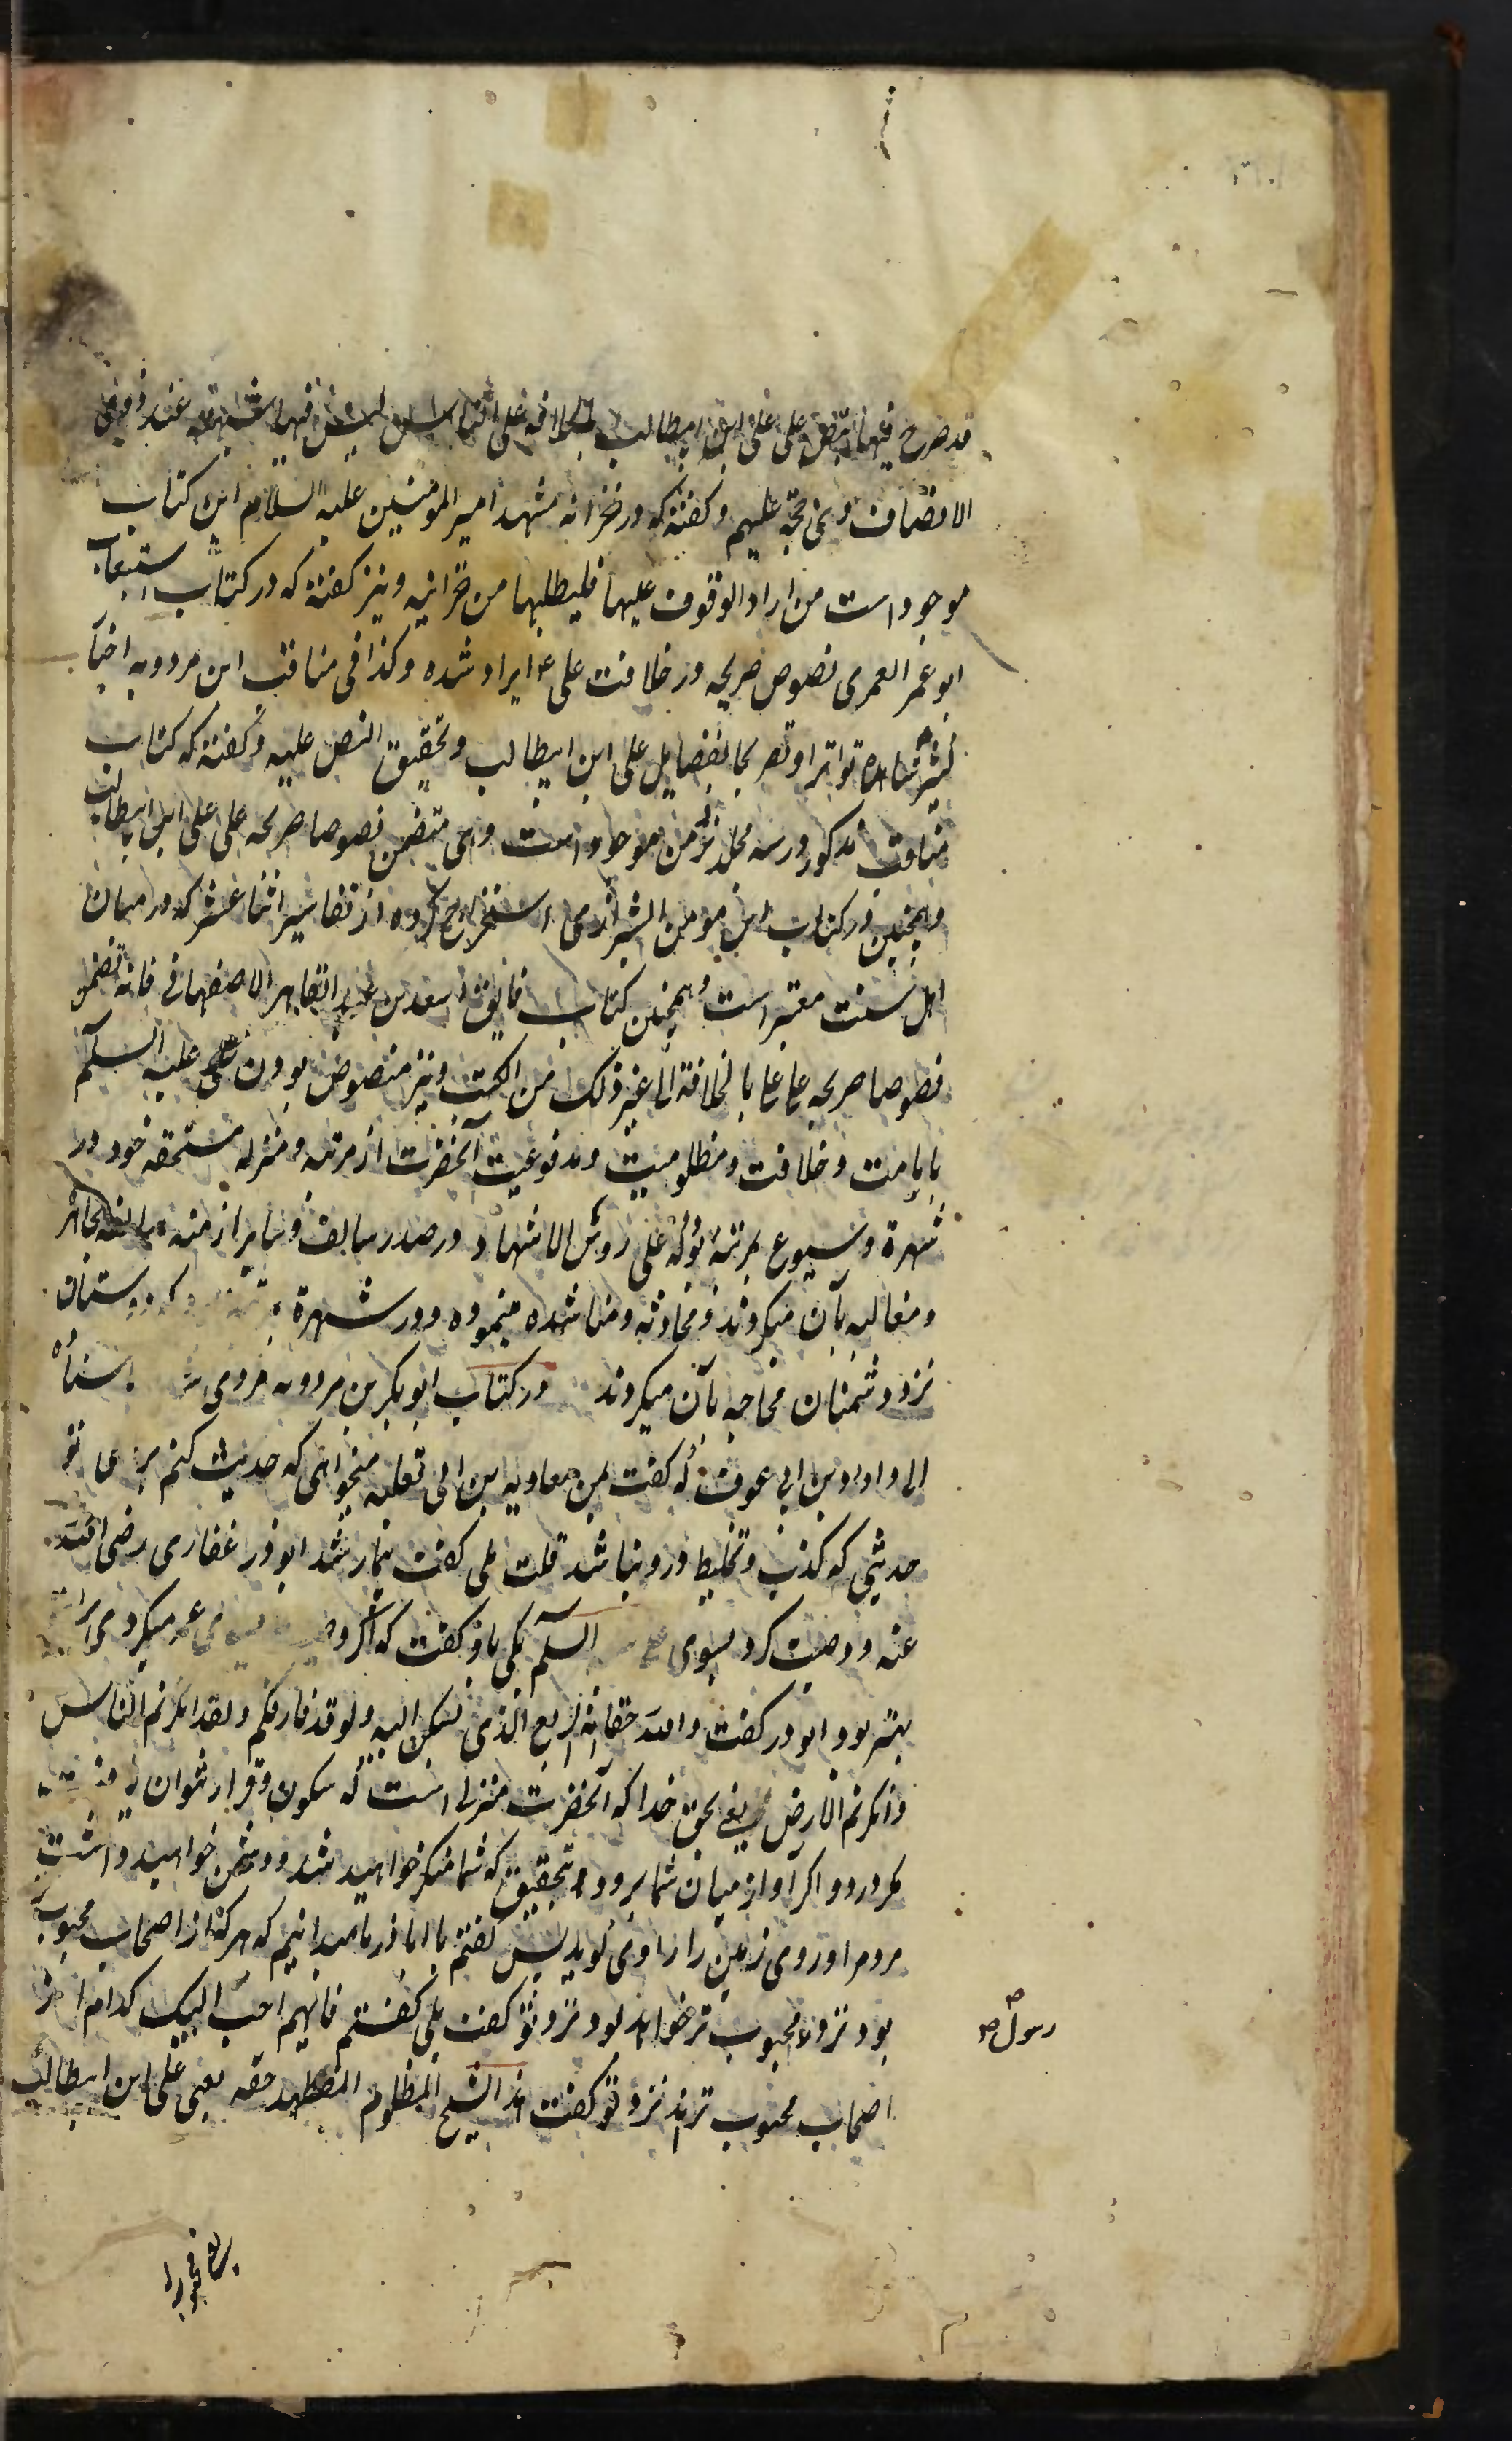 قد صرح فیها بنص علی علی ابن ابیطالب بالخلافة علی الناس لیس فیها شبهة عند ذوی
الانصاف وهی حجة علیهم وکفته که در خزانه مشهد امیر المومنین علیه السلام این کتاب
موجود است من اراد الوقوف علیها فلیطلبها من خزانیه ونیز کفته که در کتاب استیعاب
ابو عمر العمری نصوص صریحه در خلافت علی ع ایراد شده وکذا فی مناقب ابن مردویه اخبار
تواترا وتصریحا بفضایل علی ابن ابیطالب وتحقیق النص علیه وکفته که کتاب
مناقب مذکور در سه مجلد نزد من موجود است وهی متضمن نصوصا صریحه علی علی ابن ابیطالب
وهمچنین در کتاب ابن مومن الشیرازی استخراج کرده از تفاسیر اثنا عشر که در میان
اهل سنت معتبر است وهمچنین کتاب فایق اسعد بن عبد القاهر الاصفهانی فانه تضمن
نصوصا صریحه علی علی بالخلافة الی غیر ذلک من الکتب ونیز منصوص بودن علی علیه السلم
بامامت وخلافت ومظلومیت ومدفوعیت آنحضرت از مرتبه ومنزله مستحقه خود در
شهرة وشیوع بمرتبه بوده علی رؤس الاشهاد در صدر سالف وسایر ازمنه
ومغالبه بآن میکردند ومحادثه ومناشده مینموده ودر شهرة بمرتبه که دوستان
نزد دشمنان محاجه بآن میکردند در کتاب ابوبکر بن مردویه مروی باسناده
الی داود بن ابی عوف که کفت بمن معاویه بن ابی ثعلبه میخواهی که حدیث کنم برای تو
حدیثی که کذب وتخلیط درو نباشد قلت بلی کفت بیمار شد ابوذر غفاری رضی الله
عنه ووصیت کرد بسوی علی السلم یکی باو کفت که اکر وصیت بسوی عمر میکردی برای
بهتر بود ابوذر کفت والله حقا انه الربیع الذی یسکن الیه ولو قد فارقکم ولقد انکرتم الناس
وانکرتم الارض یعنی بحق خدا که آنحضرت منزلی است که سکون وقرار توان یافت
مکر درو واکر او از میان شما برود بتحقیق که شما منکر خواهید شد ودشمن خواهید داشت
مردم را وروی زمین را راوی کوید پس کفتم یا اباذر ما میدانیم که هر که از اصحاب محبوب تر
بود نزد رسول ص محبوب تر خواهد بود نزد تو کفت بلی کفتم فایهم احب الیک کدام از
اصحاب محبوب ترند نزد تو کفت هذا الشیخ المظلوم المضطهد حقه یعنی علی ابن ابیطالب